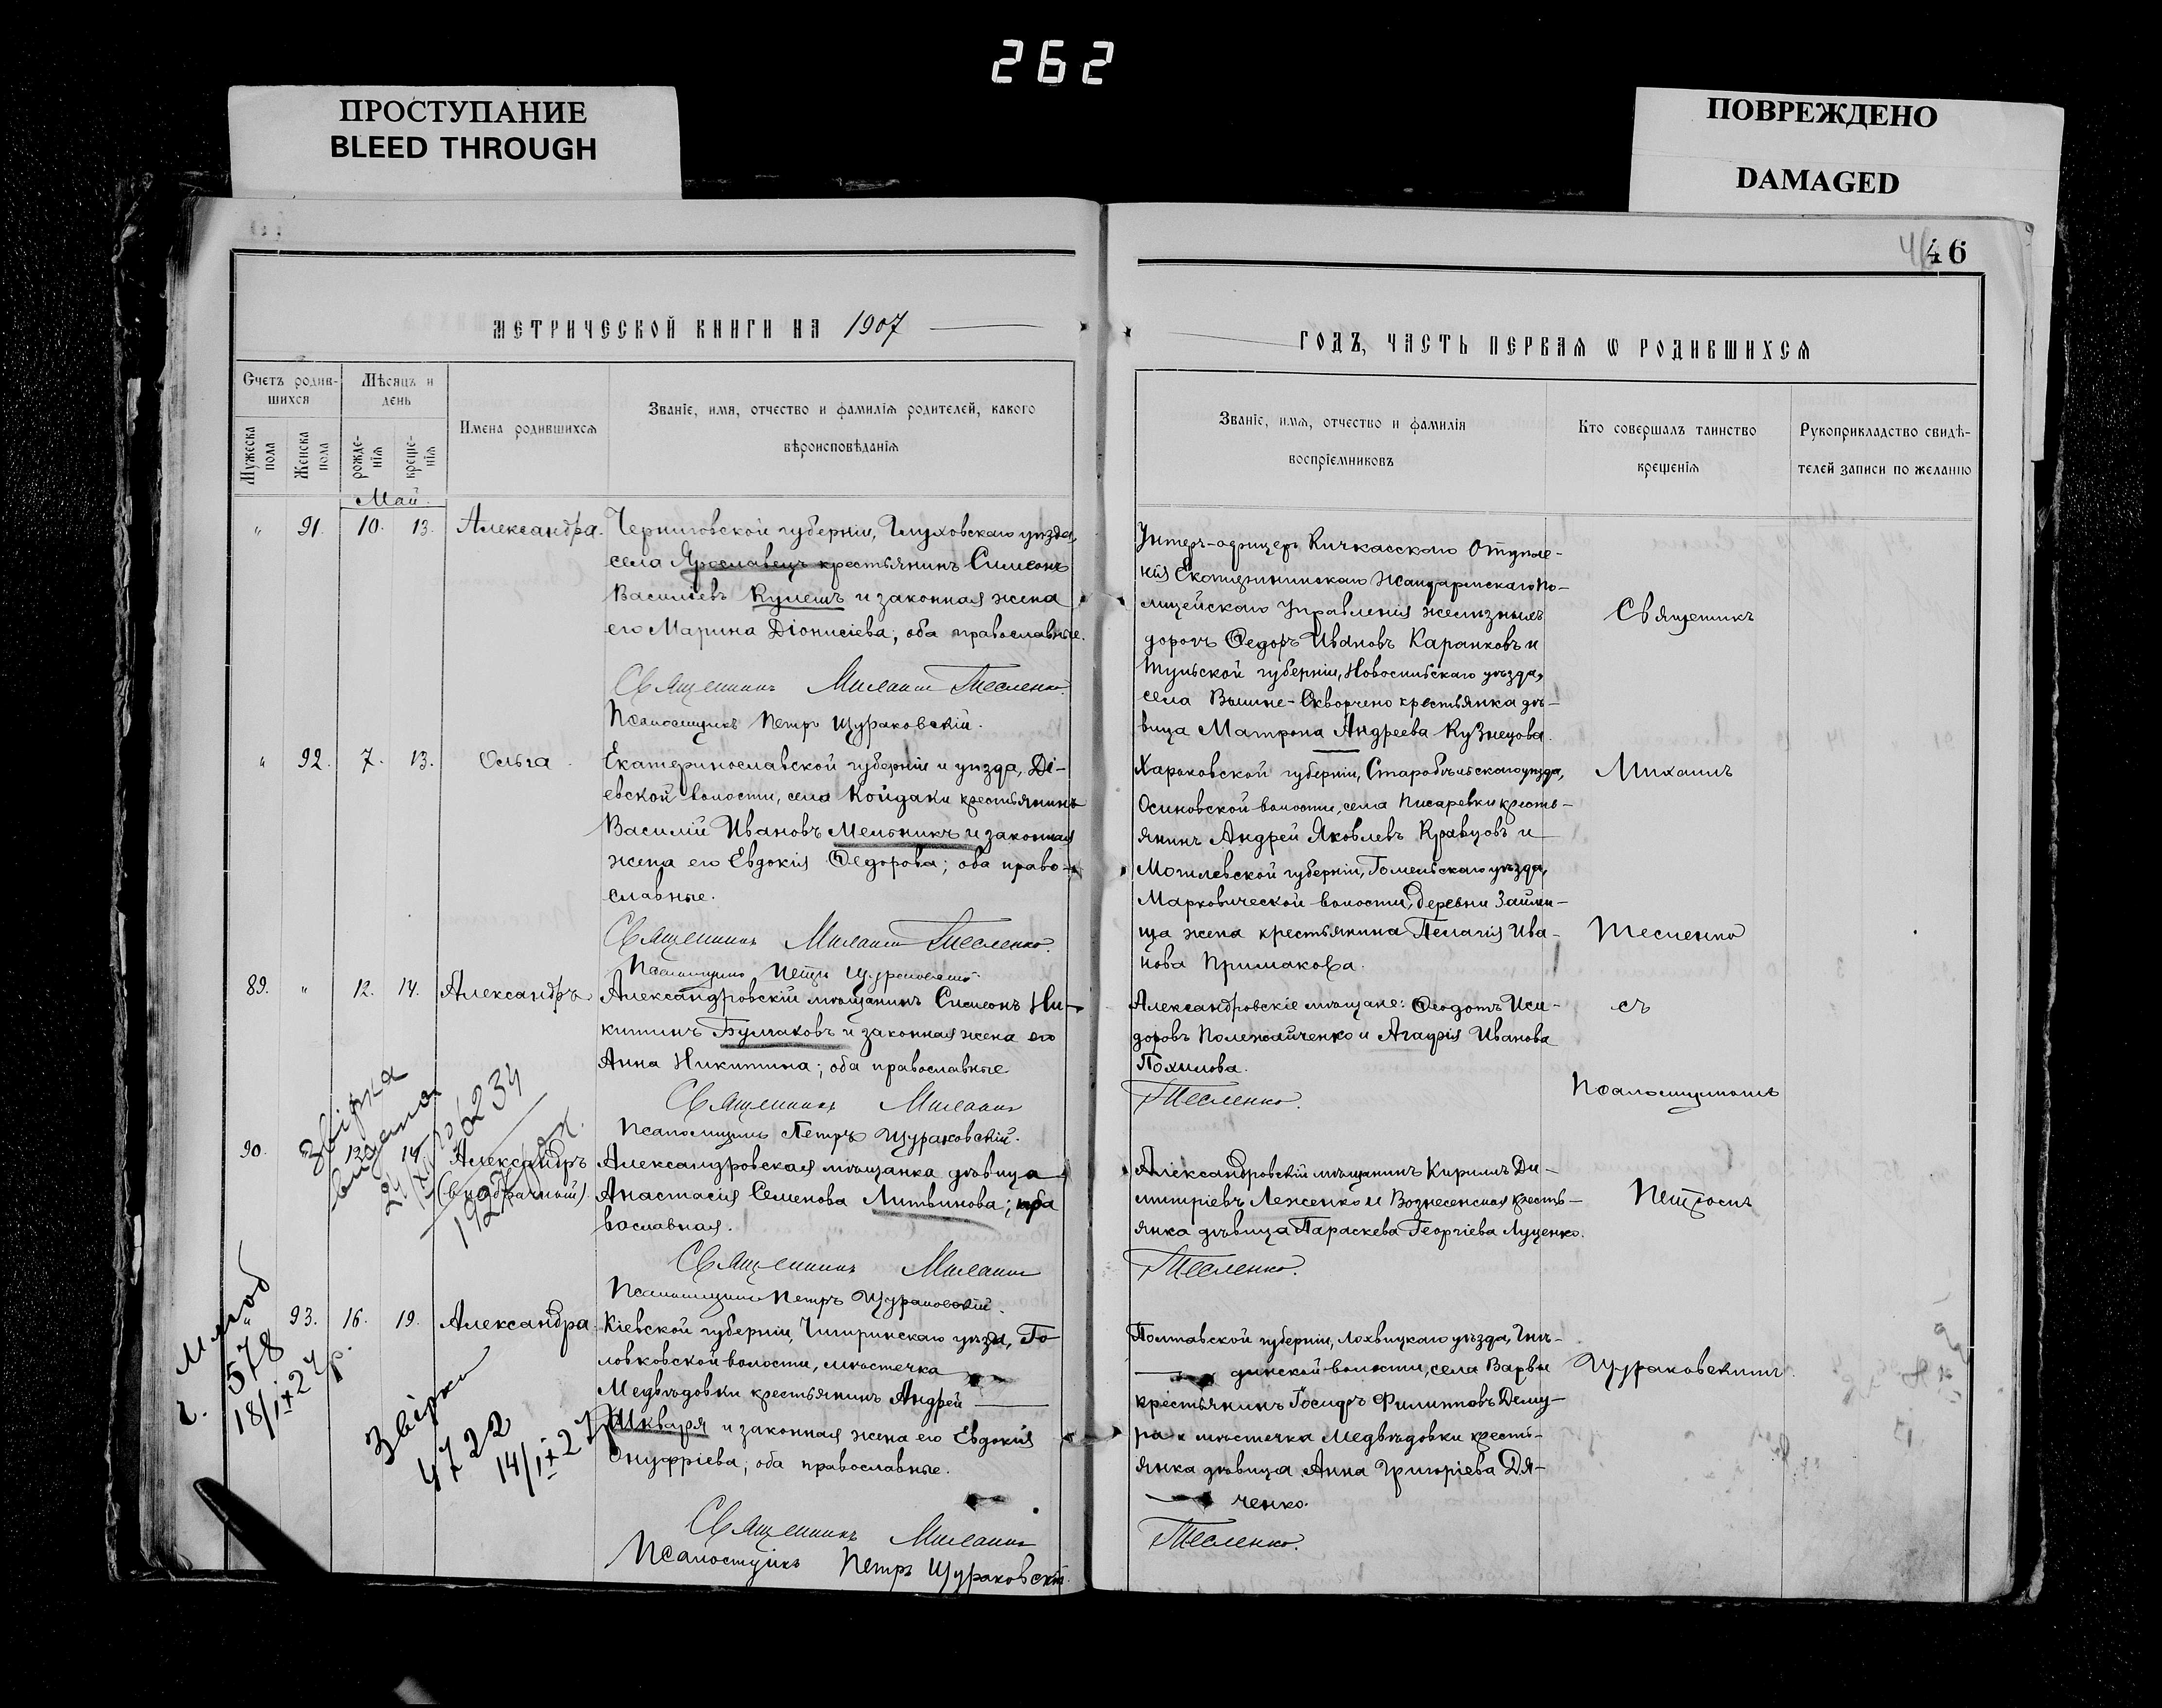 262
ПРОСТУПАНИЕ
BLEED THROUGH
ПОВРЕЖДЕНО
DAMAGED
46
МЕТРИЧЕСКОЙ КНИГИ НА 1907
ГОДЪ, ЧАСТЬ ПЕРВАЯ Ѡ РОДИВШИХСЯ
Счетъ родив-
шихся
Мѣсяцъ и
день
Мужеска
пола
Женска
пола
рожде-
нія
креще-
нія
Имена родившихся
Званіе, имя, отчество и фамилія родителей, какого
вѣроисповѣданія
Званіе, имя, отчество и фамилія
воспріемниковъ
Кто совершалъ таинство
крещенія
Рукоприкладство свидѣ-
телей записи по желанію
Май
" 91. 10. 13. Александра.
Черниговской губерніи, Глуховскаго уѣзда,
села Ярославецъ крестьянинъ Симеонъ
Василіевъ Кулешъ и законная жена
его Марина Діонисіева; оба православные.
Священникъ Михаилъ Тесленко.
Псаломщикъ Петръ Щураковскій.
Унтеръ-офицеръ Кичкасскаго Отдѣле-
нія Екатерининскаго Жандармскаго По-
лицейскаго Управленія желѣзныхъ
дорогъ Ѳедоръ Ивановъ Каранковъ и
Тульской губерніи, Новосильскаго уѣзда,
села Вышне-Скворчено крестьянка дѣ-
вица Матрона Андреева Кузнецова.
" 92. 7. 13. Ольга.
Екатеринославской губерніи и уѣзда, Ді-
евской волости, села Койдаки крестьянинъ
Василій Ивановъ Мельникъ и законная
жена его Евдокія Ѳедорова; оба право-
славные.
Священникъ Михаилъ Тесленко.
Псаломщикъ Петръ Щураковскій.
Харьковской губерніи, Старобѣльскаго уѣзда,
Осиновской волости, села Писаревки кресть-
янинъ Андрей Яковлевъ Кравцовъ и
Могилевской губерніи, Гомельскаго уѣзда,
Марковической волости, деревни Займи-
ща жена крестьянина Пелагія Ива-
нова Примакова.
89. " 12. 14. Александръ
Александровскій мѣщанинъ Симеонъ Ни-
китинъ Булгаковъ и законная жена его
Анна Никитина; оба православные
Священникъ Михаилъ
Псаломщикъ Петръ Щураковскій.
Александровскіе мѣщане: Ѳеодотъ Иси-
доровъ Полежайченко и Агафія Иванова
Похилова.
Тесленко.
90. 13. 14. Александръ
(внѣбрачный).
Александровская мѣщанка дѣвица
Анастасія Семенова Литвинова; пра
вославная.
Священникъ Михаилъ
Псаломщикъ Петръ Щураковскій.
Александровскій мѣщанинъ Кириллъ Ди-
митріевъ Леженко и Вознесенская кресть-
янка дѣвица Параскева Георгіева Луценко.
Тесленко.
" 93. 16. 19. Александра.
Кіевской губерніи, Чигиринскаго уѣзда, Го-
ловковской волости, мѣстечка
Медвѣдовки крестьянинъ Андрей
Шкваря и законная жена его Евдокія
Онуфріева; оба православные.
Священникъ Михаилъ
Псаломщикъ Петръ Щураковскій.
Полтавской губерніи, Лохвицкаго уѣзда, Гнѣ-
динской волости, села Варвы
крестьянинъ Іосифъ Филипповъ Дему-
ра и мѣстечка Медвѣдовки кресть-
янка дѣвица Анна Григоріева Дя-
ченко.
Тесленко.
Священникъ
Михаилъ
Тесленко
съ
Псаломщикомъ
Петромъ
Щураковскимъ.
Звірка
видана
6234
1927
578
Звірка
4722